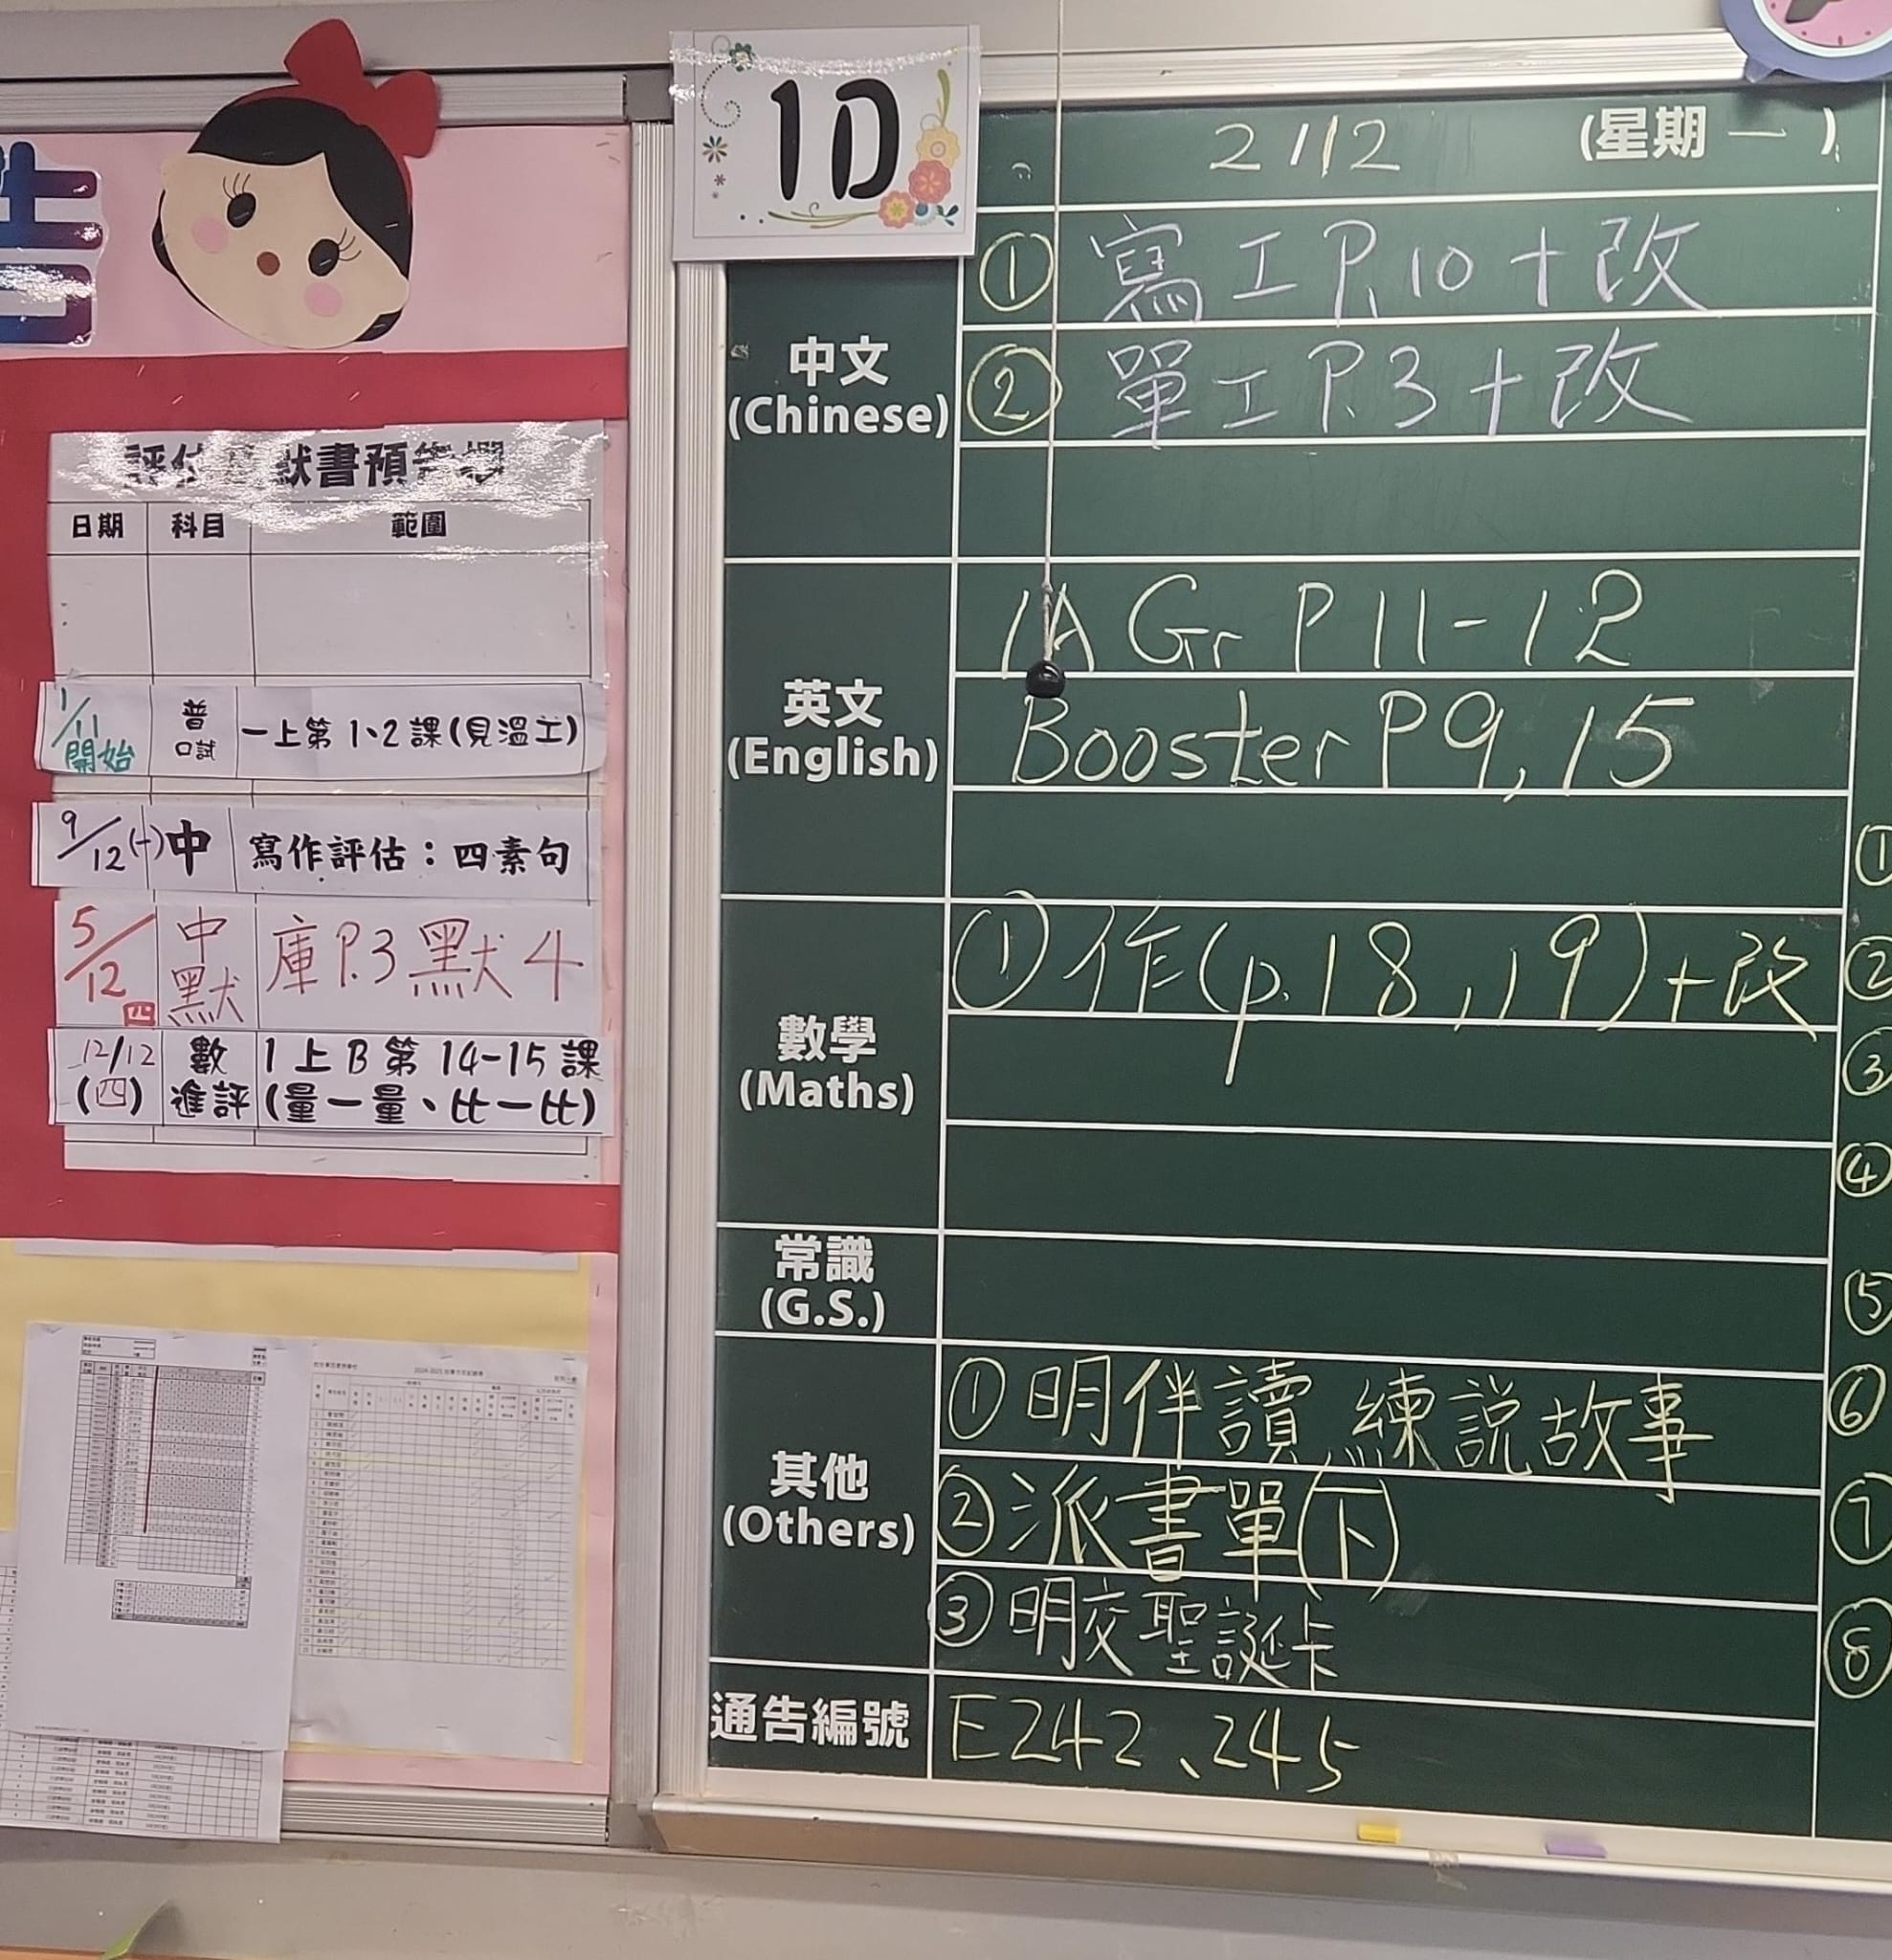 告
評估 默書預告欄
日期 科目 範圍
1/11 開始 普 口試 一上第1、2課(見溫工)
9/12(一) 中 寫作評估：四素句
5/12 四 中默 庫P.3默4
12/12 (四) 數 進評 1上B第14-15課
(量一量、比一比)
1D
2/12 (星期一)
中文
(Chinese)
① 寫工P.10+改
② 單工P.3+改
英文
(English)
1A Gr P11-12
Booster P9,15
數學
(Maths)
①作(p.18,19)+改
常識
(G.S.)
其他
(Others)
①明伴讀 練説故事
②派書單(下)
③明交聖誕卡
通告編號
E242、245
①
②
③
④
⑤
⑥
⑦
⑧